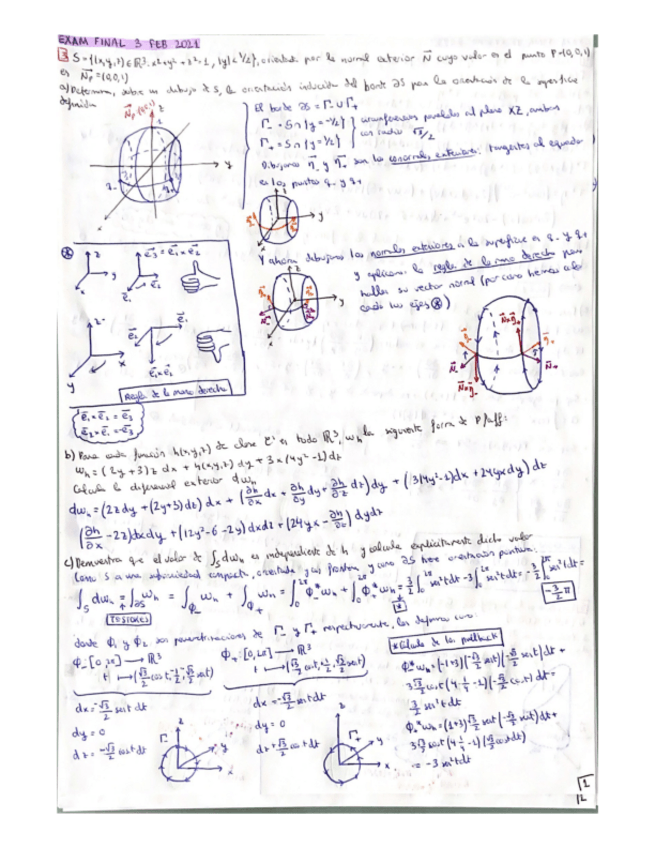 EXAM FINAL 3 FEB 2021
3 S = {(x,y,z) ∈ R³: x²+y²+z²=1, |y|<1/2}, orientada por la normal exterior N cuyo valor en el punto P=(0,0,1)
es N_p = (0,0,1)
a) Determina, sobre un dibujo de S, la orientación inducida del borde ∂S por la orientación de la superficie
definida
El borde ∂S = Γ- ∪ Γ+
Γ- = S ∩ {y = -1/2}
Γ+ = S ∩ {y = 1/2}
circunferencias paralelas al plano XZ, ambas
con radio √3/2
Dibujamos η- y η+ son las conormales exteriores, tangentes al ecuador
en los puntos q- y q+
Y ahora dibujamos las normales exteriores a la superficie en q- y q+
y aplicamos la regla de la mano derecha para
hallar su vector normal
e3 = e1 × e2
e1 × e2
Regla de la mano derecha
e1 × e2 = e3
e2 × e1 = -e3
b) Para cada función h(x,y,z) de clase C¹ en todo R³, w_h la siguiente forma de Pfaff:
w_h = (2y+3)z dx + h(x,y,z) dy + 3x(4y²-1) dz
Calcula la diferencial exterior dw_h
dw_h = (2z dy + (2y+3) dz) dx + (∂h/∂x dx + ∂h/∂y dy + ∂h/∂z dz) dy + (3(4y²-1) dx + 24yx dy) dz
(∂h/∂x - 2z) dx dy + (12y² - 6 - 2y) dx dz + (24yx - ∂h/∂z) dy dz
c) Demuestra que el valor de ∫_S dw_h es independiente de h y calcula explícitamente dicho valor
Como S es una subvariedad compacta, orientada y con frontera, y como ∂S tiene orientación positiva:
∫_S dw_h = ∫_∂S w_h = ∫_Φ- w_h + ∫_Φ+ w_h = ∫_0^2π Φ-* w_h + ∫_0^2π Φ+* w_h = 3/2 ∫_0^2π sin²t dt - 3 ∫_0^2π sin²t dt = -3/2 ∫_0^2π sin²t dt =
-3/2 π
donde Φ1 y Φ2 son parametrizaciones de Γ- y Γ+ respectivamente, las definimos como:
* Cálculo de los pullback
Φ-: [0,2π] → R³
Φ+: [0,2π] → R³
dx = -√3/2 sin t dt
dy = 0
dz = -√3/2 cos t dt
dx = -√3/2 sin t dt
dy = 0
dz = √3/2 cos t dt
3/2 sin²t dt
= -3 sin²t dt
1
12